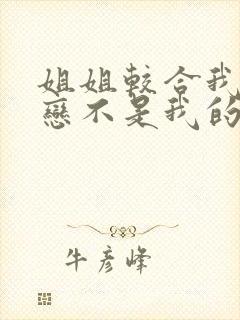 姐姐較合我
戀不是我的
牛彥峰